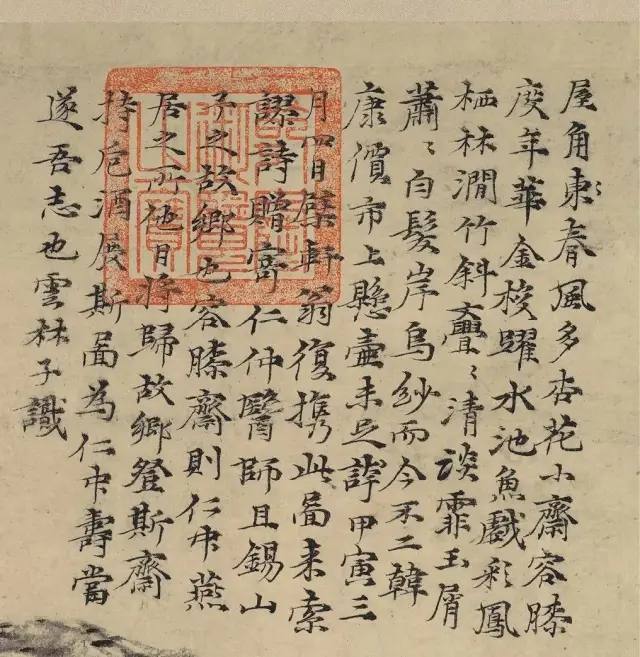 屋角東春風多杏花小齋容膝
度年華金梭躍水池魚戲彩鳳
栖林澗竹斜亹〻清談霏玉屑
蕭〻白髮岸烏紗而今不二韓
康價市上懸壺未足誇甲寅三
月四日檗軒翁復携此圖来索
謬詩贈寄仁仲醫師且錫山
予之故鄉也容膝齋則仁中燕
居之所他日將歸故鄉登斯齋
持卮酒展斯圖為仁中壽當
遂吾志也雲林子識